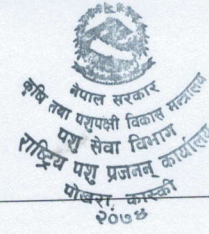 नेपाल सरकार
कृषि तथा पशुपक्षी विकास मन्त्रालय
पशु सेवा विभाग
राष्ट्रिय पशु प्रजनन् कार्यालय
पोखरा, कास्की
२०७४